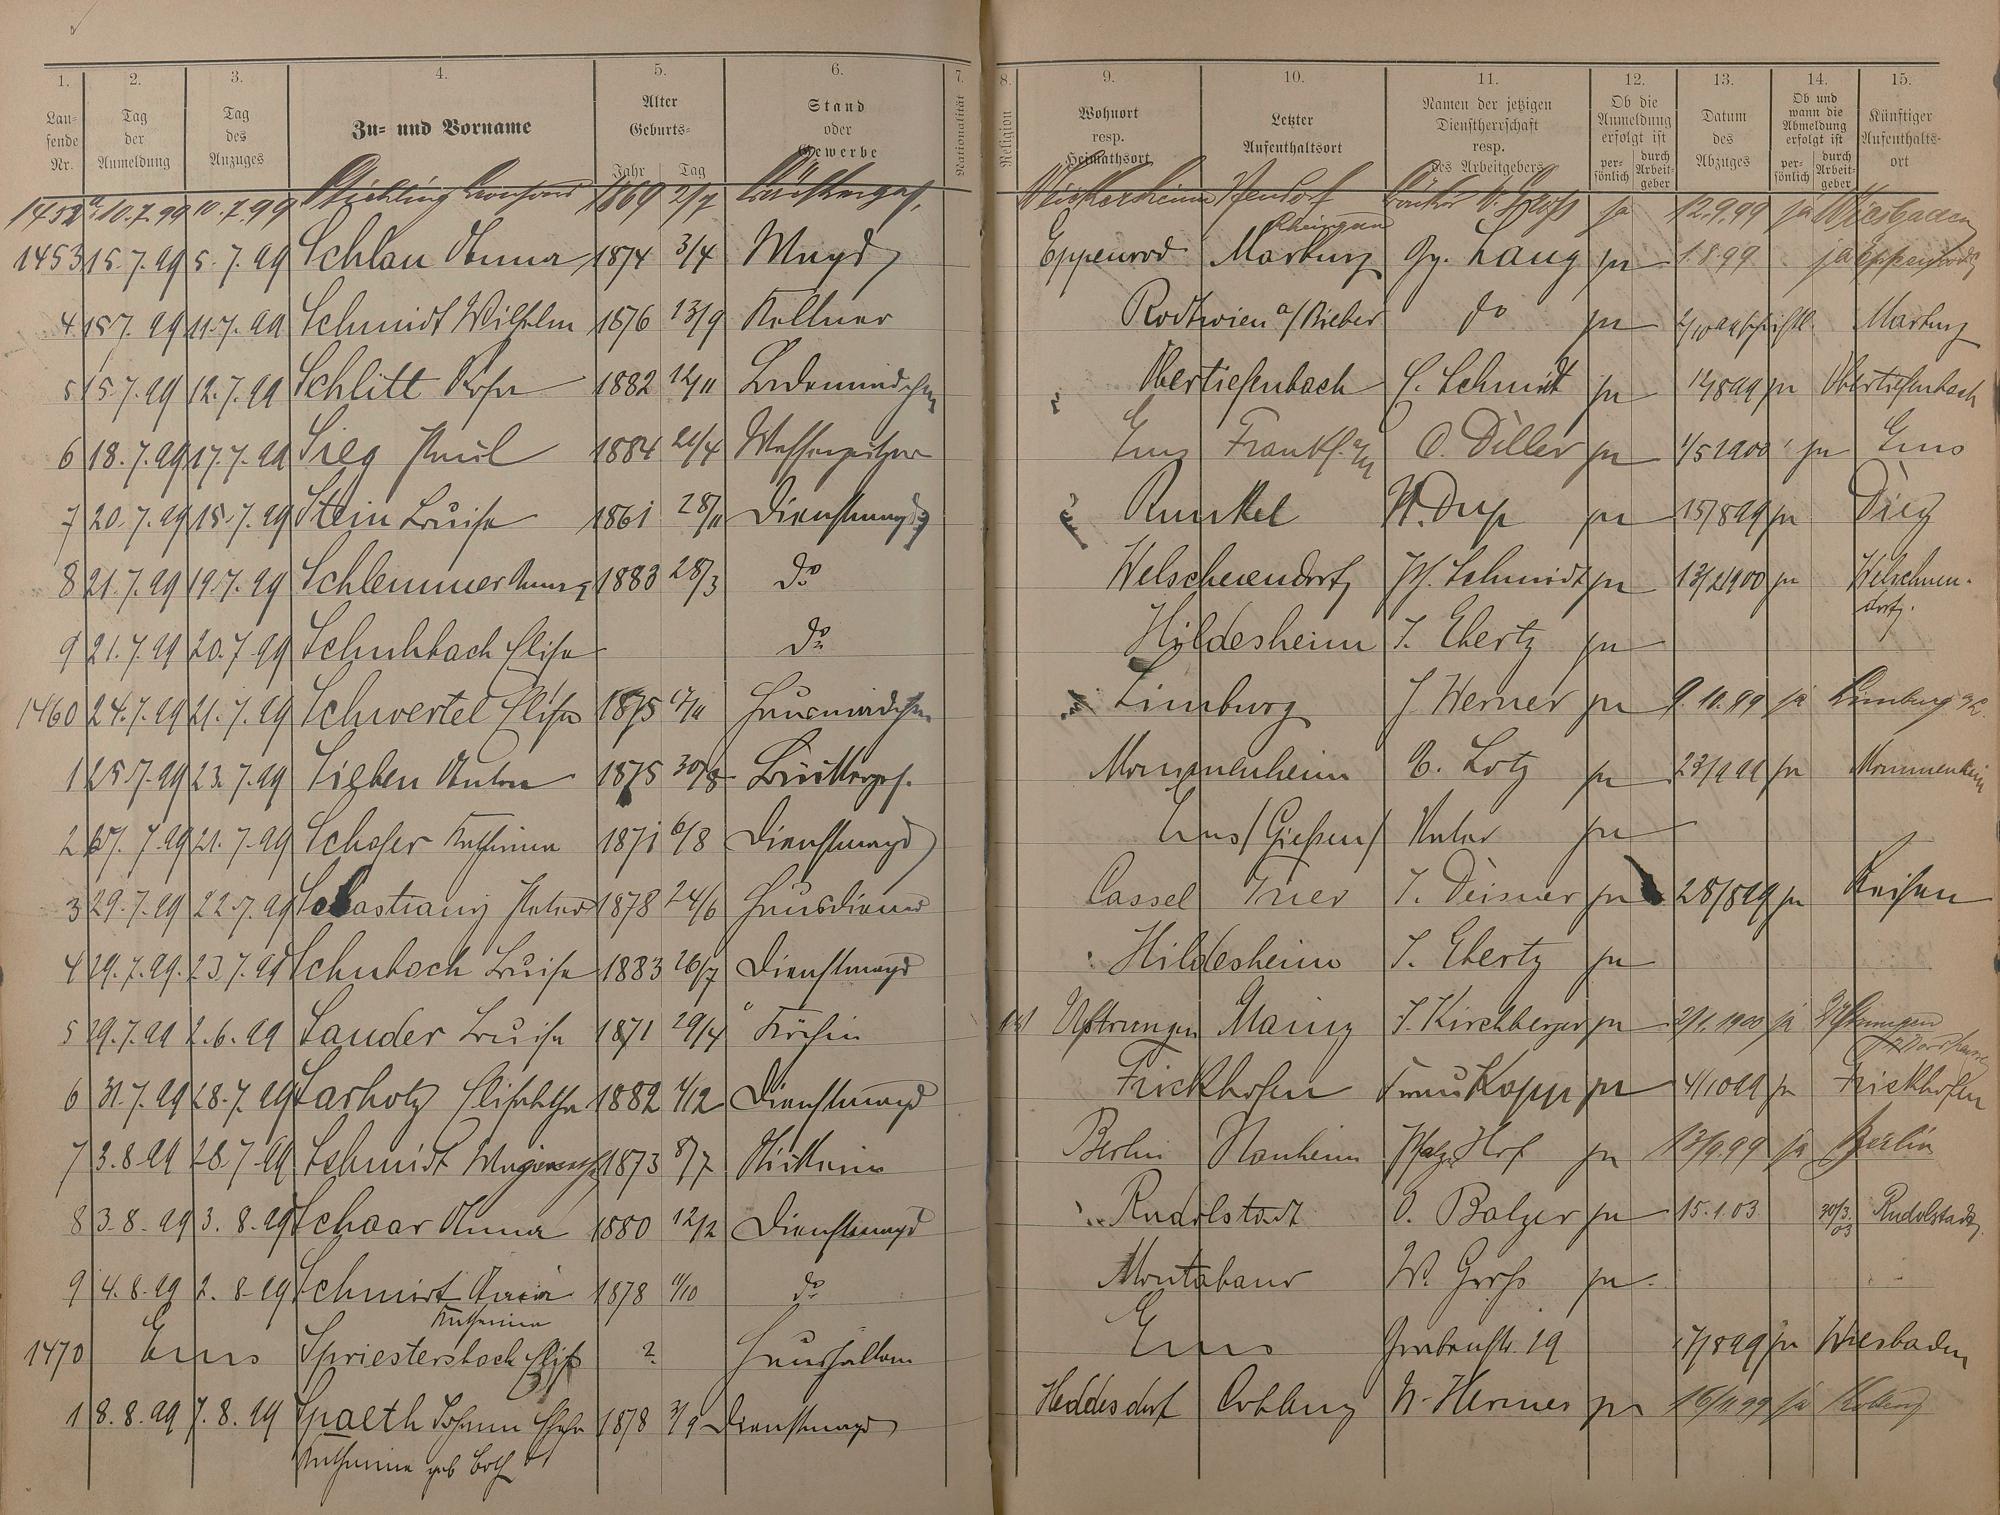 1. 2. 3. 4. 5. 6. 7. 8. 9. 10. 11. 12. 13. 14. 15.
Laufende Nr. Tag der Anmeldung Tag des Anzuges Zu- und Vorname Alter Geburts- Jahr Tag Stand oder Gewerbe Nationalität Religion Wohnort resp. Heimathsort Letzter Aufenthaltsort Namen der jetzigen Dienstherrschaft resp. des Arbeitgebers Ob die Anmeldung erfolgt ist persönlich durch Arbeitgeber Datum des Abzuges Ob und wann die Abmeldung erfolgt ist persönlich durch Arbeitgeber Künftiger Aufenthaltsort
1452a 10.7.99 10.7.99 1869 2/7 ja 12.9.99 ja Wiesbaden
1453 15.7.99 5.7.99 Schlau Anna 1874 3/4 Magd Eppenrod Marburg Gg. Lang ja 1.8.99 ja Eppenrod
4 15.7.99 11.7.99 Schmidt Wilhelm 1876 13/9 Kellner Rodtwien a/Bieber do ja Marburg
5 15.7.99 12.7.99 Schlitt Rosa 1882 12/11 Ladenmädchen Obertiefenbach C. Schmidt ja ja Obertiefenbach
6 18.7.99 17.7.99 Sieg Paul 1884 21/4 Messerputzer Ems Frankf. a/M O. Diller ja 1/5 1900 ja Ems
7 20.7.99 15.7.99 Stein Luise 1861 28/11 Dienstmagd Runkel ja 15/8 99 ja Diez
8 21.7.99 19.7.99 Schlemmer Anna 1883 28/3 do Welschneudorf Ph. Schmidt ja 13/2 1900 ja Welschneudorf.
9 21.7.99 20.7.99 Schuhbach Elisa do Hildesheim J. Ebertz ja
1460 24.7.99 21.7.99 Schwertel Elisa 1875 Hausmädchen Limburg J Werner ja 9.10.99 ja Limburg a/L.
1 25.7.99 23.7.99 Sieben Anton 1875 30/8 Bäckerges. Mommenheim C. Lotz ja 23/9 99 ja Mommenheim
2 27.7.99 21.7.99 Schäfer Katharina 1871 6/8 Dienstmagd Ems (Gießen) Vater ja
3 29.7.99 22.7.99 Sebastiany Peter 1878 24/6 Hausdiener Cassel Trier J. Deisner ja 28/8 99 ja Reisen
4 29.7.99. 23.7.99 Schubach Luise 1883 26/7 Dienstmagd Hildesheim J. Ebertz ja
5 29.7.99 2.6.99 Sauder Luise 1871 29/4 Köchin Mainz J. Kirchberger ja 2/1. 1900 ja
6 31.7.99 28.7.99 Sarholz Elisabetha 1882 4/12 Dienstmagd Frickhofen Frau Kopp ja 4/10 99 ja Frickhofen
7 3.8.99 28.7.99 Schmidt 1873 8/7 Berlin Nauheim Pfälz. Hof ja 13/9.99 ja Berlin
8 3.8.99 3.8.99 Schaar Anna 1880 12/2 Dienstmagd Rudolstadt O. Balzer ja 15.1.03 30/3.03 Rudolstadt
9 4.8.99 2.8.99 Schmidt Anna Katharina 1878 do Montabaur W. Groß ja.
1470 Ems Spriestersbach Elise ? Haushalten Ems Grabenstr. 19 17/8 99 ja Wiesbaden
1 8.8.99 7.8.99 Spaeth Johann Ehefr 1878 3/9 Dienstmagd Heddesdorf Coblenz W. Hermes ja 16/11 99 ja Koblenz
Katharina geb Both